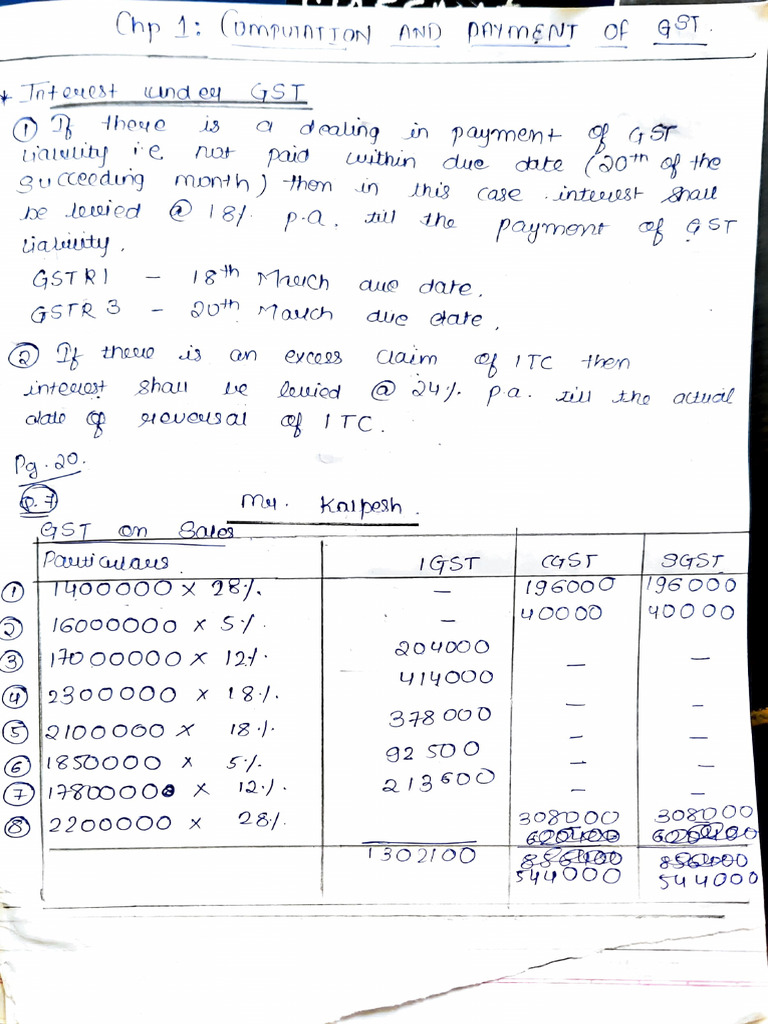 Chp 1: COMPUTATION AND PAYMENT OF GST.
* Interest under GST
① If there is a dealing in payment of GST
liability i.e not paid within due date (20th of the
succeeding month) then in this case interest shall
be levied @ 18% p.a. till the payment of GST
liability.
GSTR1 - 18th March due date.
GSTR 3 - 20th March due date.
② If there is an excess claim of ITC then
interest shall be levied @ 24% p.a. till the actual
date of reversal of ITC.
Pg. 20.
Q.7 Mr. Kalpesh.
GST on Sales
Particulars IGST CGST SGST
① 1400000 × 28% — 196000 196000
② 16000000 × 5% — 40000 40000
③ 17000000 × 12% 204000 — —
④ 2300000 × 18% 414000 — —
⑤ 2100000 × 18% 378000 — —
⑥ 1850000 × 5% 92500 — —
⑦ 1780000 × 12% 213600 — —
⑧ 2200000 × 28% 308000 308000
1302100 544000 544000